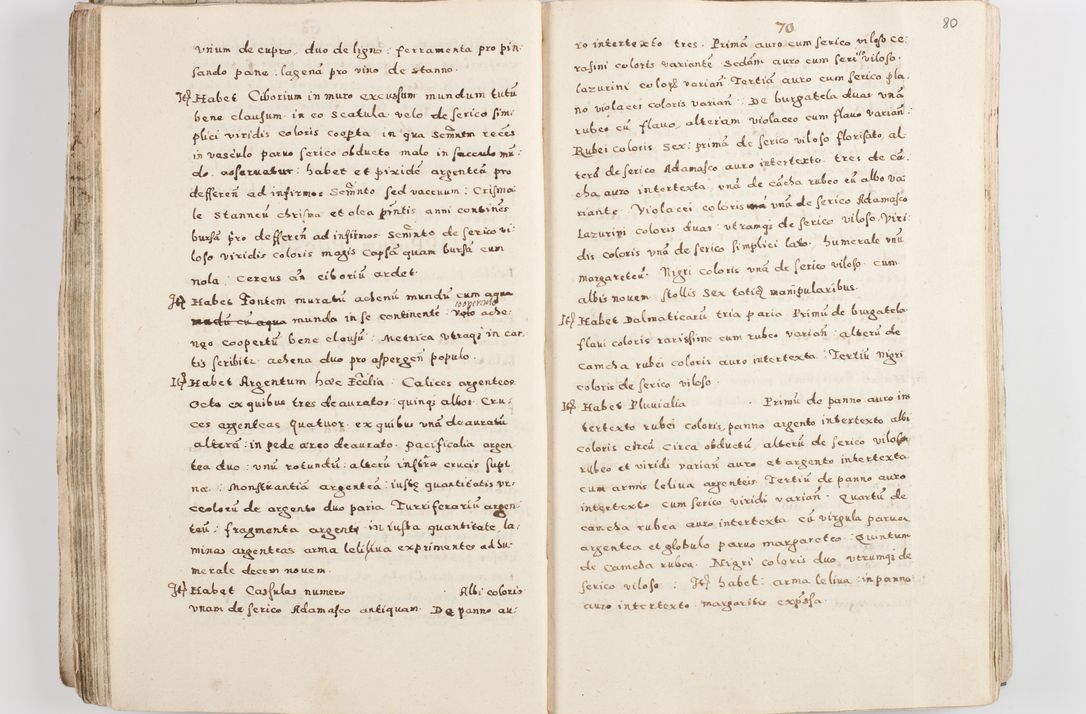 vnum de cupro, duo de ligno : ferramenta pro pin-
sando pane . lagena pro vino de stanno.
Itẽ Habet Ciborium in muro excussum mundum tutũ
bene clausum. in eo Scatula velo de serico sim-
plici viridis coloris coopta in qua Semñtm recẽs
in vasculo paruo serico obducto malo in sacculo mũ-
do asseruatur : habet et pixidẽ argenteã pro
defferen̄ ad infirmos Semñto sed vacenum : Crisma-
le Stanneũ chrisma et olea p̃ntis anni continẽs
bursã pro defferen̄ ad infirmos Semñto de serico vi-
loso viridis coloris magis Capsã quam bursã cum
nola : Cereus añ ciboriũ ardet.
Itẽ Habet Fontem muratũ aehenũ mundũ cum aqua
mundũ cũ aqua munda in se continente : Velo ache- cooperculo
neo coopertũ bene clausũ : Metrica vtraqз in car-
tis scribitr aehena duo pro aspergen̄ populo.
Itẽ Habet Argentum haec Ecclia : Calices argenteos
Octo ex quibus tres deauratos, quinqз albos. Cru-
ces argenteas quatuor. ex quibus vnã deauratũ
alterã : in pede aereo deaurato. Pacificalia argen
tea duo : vnũ rotundũ : alterũ instra crucis supi
na : Monstrantiã argenteã : iustę quantitatis vr-
ceolorũ de argento duo paria Turriferariũ argen
teũ : fragmenta argenti in iusta quantitate, la-
minas argenteas arma leliua exprimentes ad hu-
merale decem novem.
Itẽ Habet Cassulas numero Albi coloris
vnam de serico Adamasco antiquam. De panno au-
70
80
ro intertexto tres. Primã auro cum serico viloso ce-
rasini coloris variante Secdam auro cum serico viloso
lazurini colors varian̄ Tertiã auro cum serico pla-
no violacei coloris varian̄ : De burgatela duas vnã
rubeo cũ flauo, alteram violaceo cum flauo varian̄.
Rubei coloris Sex : primã de serico viloso florisato, al-
terã de serico Adamasco auro intertexto. tres de cã-
cha auro intertexta, vnã de cãcha rubeo cũ albo va-
riante. Violacei coloris vnã de serico Adamasco
Lazurini coloris duas : vtramqз de serico viloso. Viri-
dis coloris vnã de serico simplici laxo, humerale vnũ
margareteũ. Nigri coloris vnã de serico viloso cum
albis nouem stollis Sex totiď manipularibus.
Itẽ Habet Dalmaticarũ tria paria Primũ de burgatela
flaui coloris rarissime cum rubeo varian̄ : alterũ de
camcha rubei coloris auro intertexta : Tertiũ nigri
coloris de serico viloso.
Itẽ Habet Pluuialia Primũ de panno auro in
tertexto rubei coloris, panno argento intertexto albi
coloris circũ Circa obductũ alterũ de serico viloso
rubeo et viridi varian̄ auro et argento intertexta
cum armis leliua argenteis Tertiũ de panno auro
intertexto cum serico viridi varian̄. Quartũ de
camcha rubea auro intertexta cũ virgula parua
argentea et globulo paruo margareteo. Quintum
de Camcha rubea. Nigri coloris duo vtrumqз de
serico viloso : Itẽ habet : arma leliua : in panno
auro intertexto margaritis exp̃ssa.